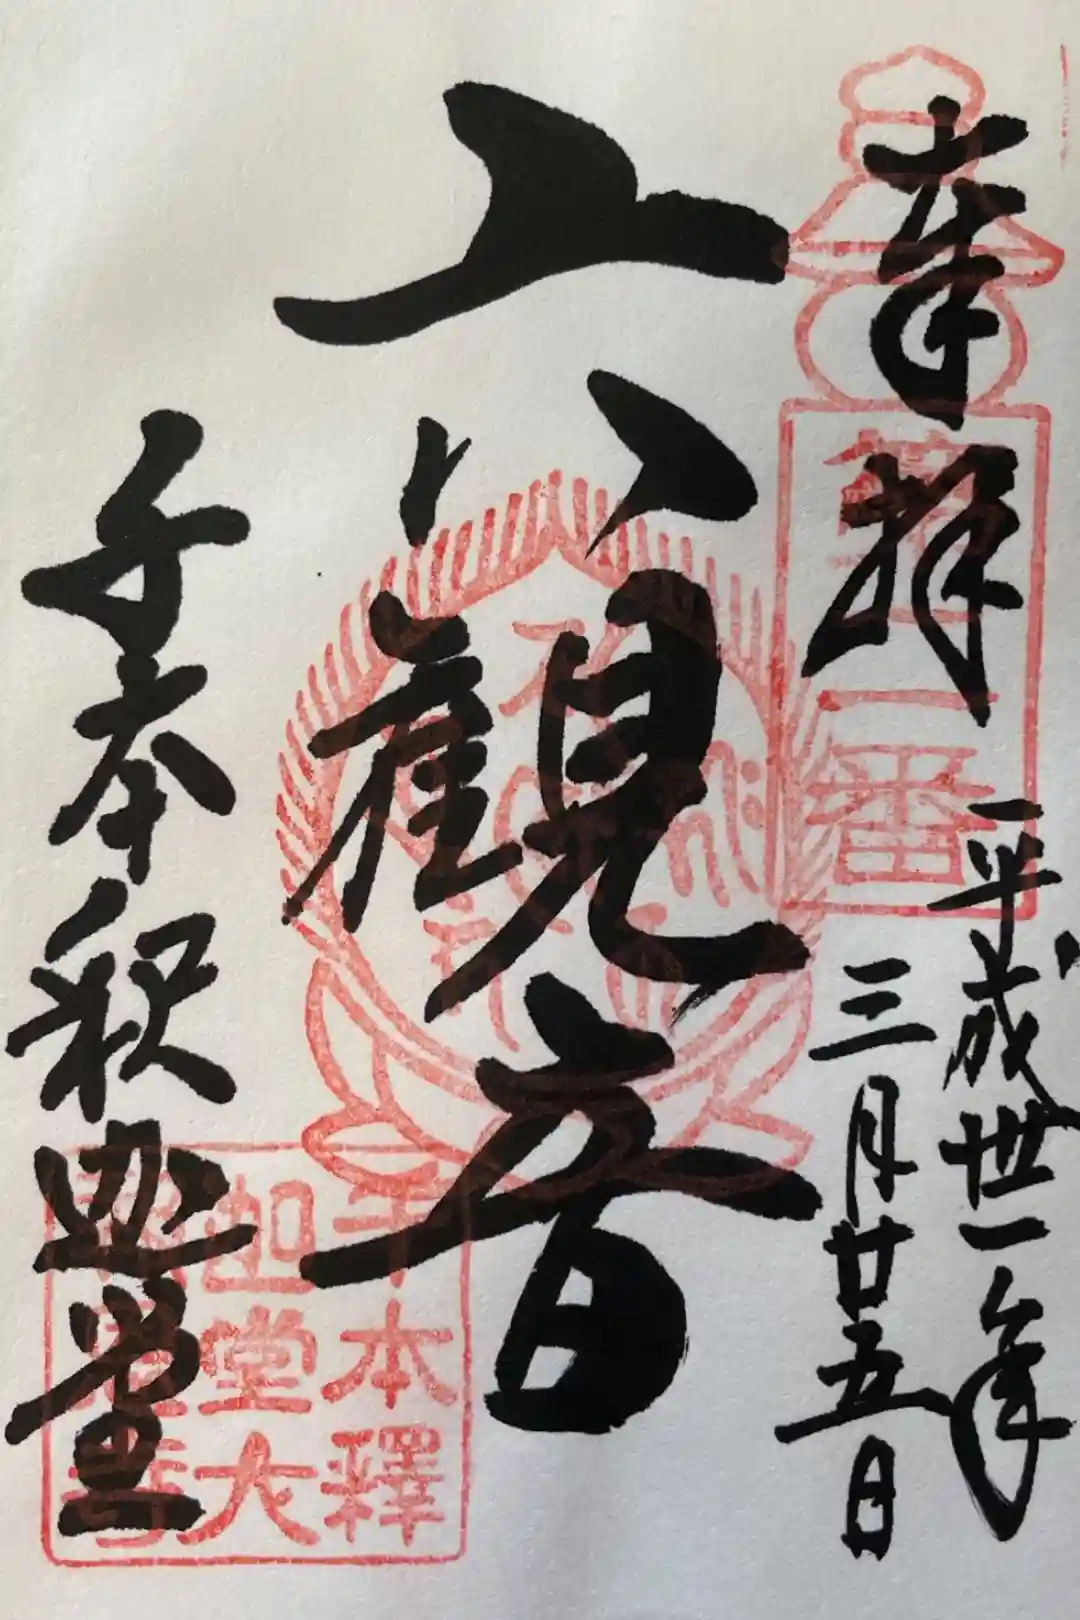 奉拝
平成丗一年
三月廿五日
六観音
千本釈迦堂
第
一番
千本釋
迦堂大
報恩寺